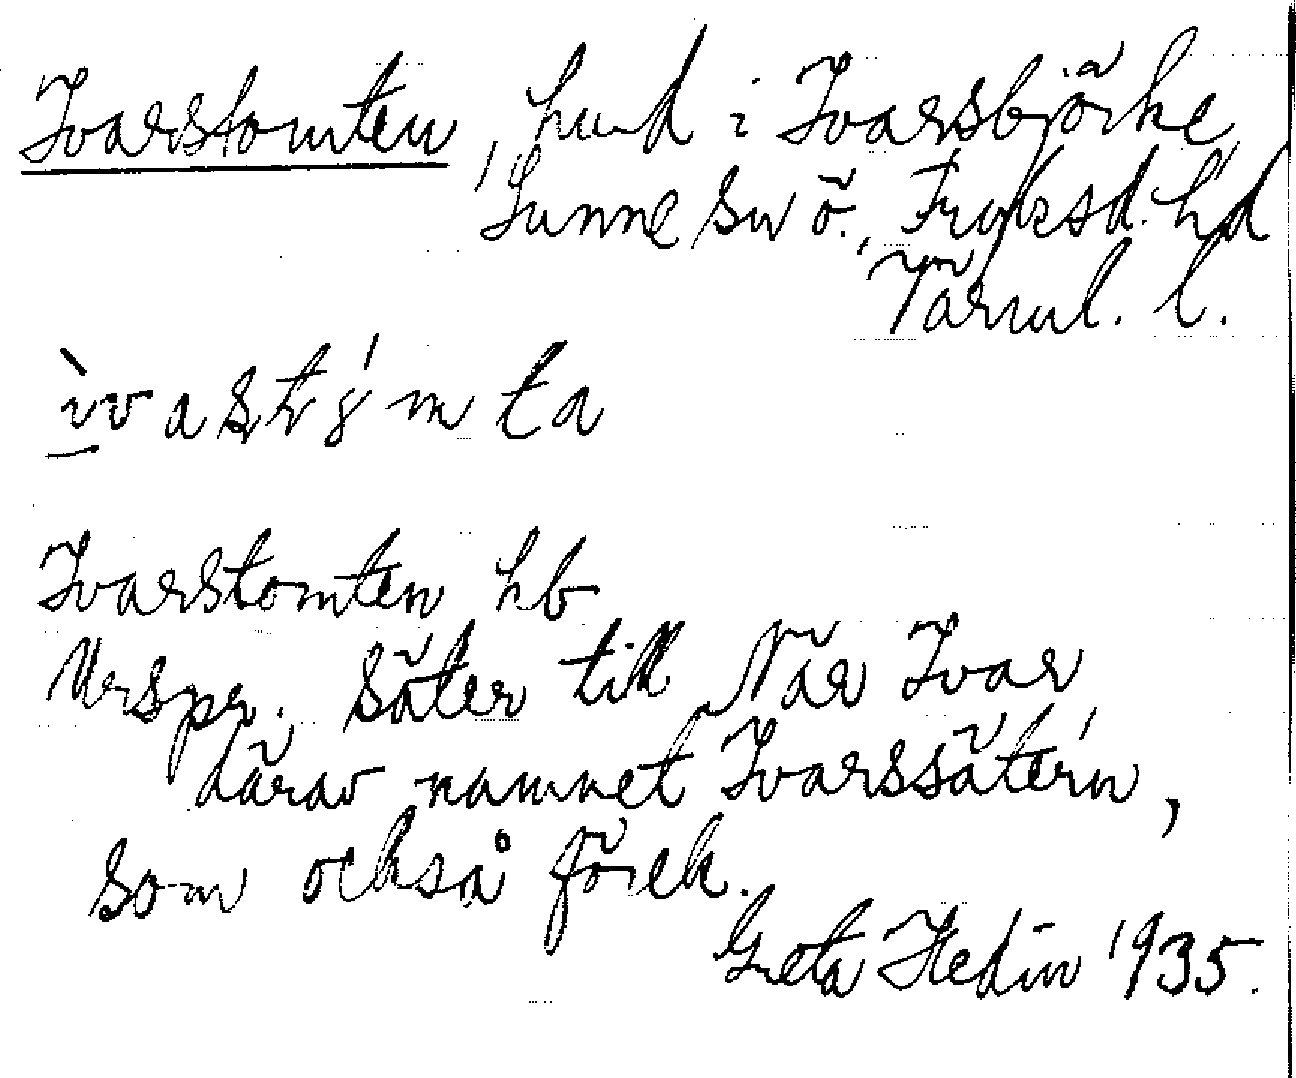 Ivarstomten, hmd i Ivarsbjörke,
Sunne sn ö., Fryksd. hd
Värml. l.
ìvastómta
Ivarstomten hb
Urspr. säter till När Ivar
därav namnet Ivarssätern,
som också förek.
Greta Hedin 1935.